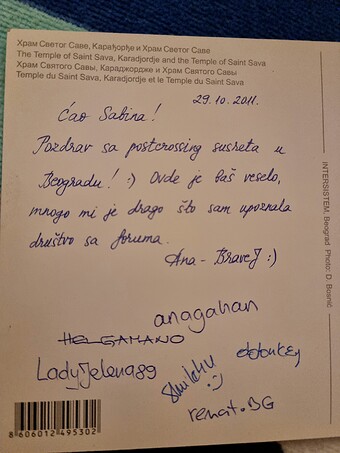 Храм Светог Саве, Карађорђе и Храм Светог Саве
The Temple of Saint Sava, Karadjordje and the Temple of Saint Sava
Храм Святого Савы, Караджордже и Храм Святого Савы
Temple du Saint Sava, Karadjordje et le Temple du Saint Sava
29.10.2011.
Ćao Sabina!
Pozdrav sa postcrossing susreta u
Beogradu! :) Ovde je baš veselo,
mnogo mi je drago što sam upoznala
društvo sa foruma.
Ana - BraveJ :)
anagahan
LadyJelena89
remait.BG
8 606012 495302
INTERSISTEM, Beograd Photo: D. Bosnić